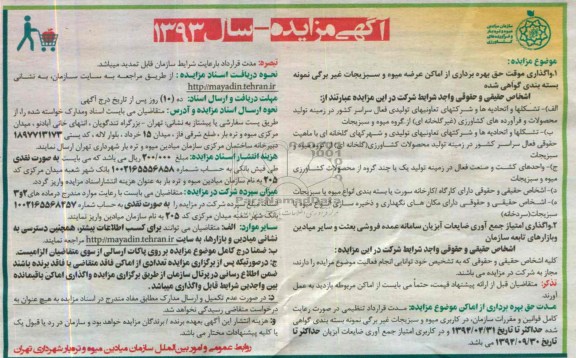 آگهی مزایده - سال ۱۳۹۳
موضوع مزایده:
۱. واگذاری موقت حق بهره برداری از اماکن عرضه میوه و سبزیجات غیر برگی نمونه
بسته بندی گواهی شده
اشخاص حقیقی و حقوقی واجد شرایط شرکت در این مزایده عبارتند از:
الف- تشکلها و اتحادیه ها و شرکتهای تعاونیهای تولیدی فعال سراسر کشور در زمینه تولید
محصولات و فرآورده های کشاورزی (غیر گلخانه ای) از گروه میوه و سبزیجات
ب- تشکلها و اتحادیه ها و شرکتهای تعاونیهای تولیدی و شهرکهای گلخانه ای با ماهیت
حقوقی فعال سراسر کشور در زمینه تولید محصولات کشاورزی(گلخانه
سبزیجات
ج- واحدهای کشت و صنعت فعال در زمینه تولید یک یا چند گروه از محصولات کشاورزی
میوه و سبزیجات
د- اشخاص حقیقی و حقوقی دارای کارگاه (کارخانه سورت یا بسته بندی انواع میوه یا سبزیجات
ه- اشخاص حقیقی و حقوقی دارای مکان های نگهداری و ذخیره
سبزیجات(سردخانه)
۲. واگذاری امتیاز جمع آوری ضایعات آبزیان سامانه عمده فروشی بعثت و سایر میادین
وبازارهای تابعه سازمان
اشخاص حقیقی و حقوقی واجد شرایط شرکت در این مزایده:
کلیه اشخاص حقیقی و حقوقی که به تشخیص خود توانایی انجام فعالیت موضوع مزایده را دارند،
مجاز به شرکت در مزایده می باشند.
تذکر: متقاضیان قبل از ارائه پیشنهاد قیمت، حتماً می بایست از اماکن مربوطه بازدید به عمل
آورند.
مدت حق بهره برداری از اماکن موضوع مزایده: مدت قرارداد تنظیمی در صورت رعایت
کامل قوانین و مقررات سازمان، در کاربری میوه و سبزیجات غیر برگی نمونه بسته بندی گواهی
شده حداکثر تا تاریخ ۱۳۹۴/۰۲/۳۱ و در کاربری امتیاز جمع آوری ضایعات آبزیان حداکثر تا
تاریخ ۱۳۹۴/۰۹/۳۰ می باشد.
تبصره: مدت قرارداد بارعایت شرایط سازمان قابل تمدید میباشد.
نحوه دریافت اسناد مزایده: از طریق مراجعه به سایت سازمان، به نشانی
http://mayadin.tehran.ir
مهلت دریافت و ارسال اسناد: ده (۱۰) روز پس از تاریخ درج آگهی
نحوه ارسال اسناد مزایده و آدرس: متقاضیان می بایست اسناد ومدارک خواسته شده را، از
طریق پست سفارشی یا پیشتاز به نشانی: تهران- بزرگراه تندگویان، انتهای خزانه بخارایی، میدان
مرکزی میوه و تره بار، ضلع شرقی فاز، میدان ۱۵ خرداد، بلوار لاله، کد پستی ۱۸۹۷۷۱۳۱۷۳
دبیرخانه ساختمان مرکزی سازمان میادین میوه و تره بار شهرداری تهران ارسال نمایند.
هزینه انتشار اسناد مزایده: مبلغ ۲۰۰/۰۰۰ ریال می باشد که می بایست به صورت نقدی
طی فیش بانکی به حساب شماره ۱۰۰۲۱۶۵۵۵۶۸۵۸ بانک شهر شعبه میدان مرکزی کد
۲۰۵ به نام سازمان میادین میوه و تره بار به عنوان هزینه انتشاراسناد مزایده واریز گردد.
میزان سپرده شرکت در مزایده: متقاضیان می بایست با رعایت موارد مندرج درماده های۲و۳
شرکت در مزایده را به صورت نقدی به حساب شماره ۱۰۰۲۱۶۵۵۶۸۲۵۷
بانک شهر شعبه میدان مرکزی کد ۲۰۵ به نام سازمان میادین واریز نمایند.
سایر موارد: الف: متقاضیان می توانند برای کسب اطلاعات بیشتر، همچنین دسترسی به
نشانی میادین و بازارها، به سایت http://mayadin.tehran.ir مراجعه نمایند.
ب: ضمناً درج کامل موضوع مزایده بر روی پاکات ارسالی از سوی متقاضیان الزامیست.
ج: درصورتیکه پس از برگزاری مزایده تعدادی از اماکن فاقد متقاضی یا فاقد برنده باشند
ضمن اطلاع رسانی در پرتال سازمان از طریق برگزاری مزایده واگذاری اماکن باقیمانده
بین واجدین شرایط قابل واگذاری میباشد.
د: در صورت عدم تکمیل و ارسال مدارک مطابق مفاد مندرج در اسناد مزایده به هیچ عنوان به
درخواست متقاضی رسیدگی نخواهد شد.
ه: هزینه انتشار این آگهی بعهده برنده / برندگان مزایده خواهد بود و سازمان در رد یا قبول یک
یا کلیه پیشنهادات مختار می باشد.
روابط عمومی و امور بین الملل سازمان میادین میوه و تره بار شهرداری تهران